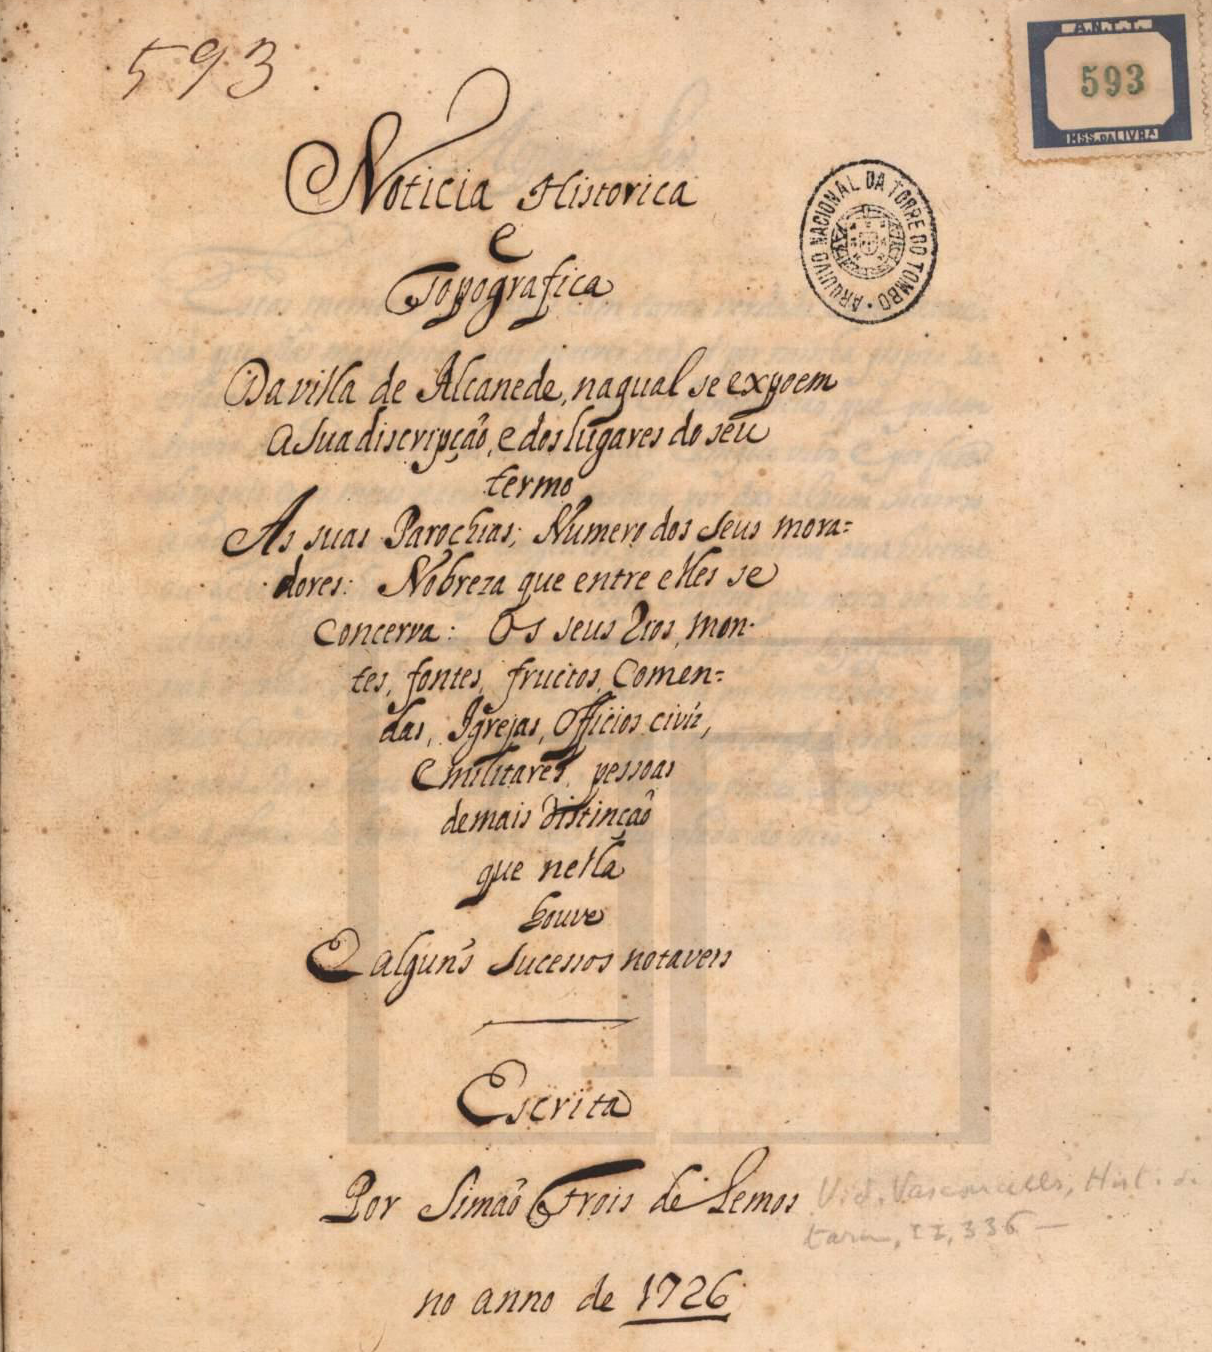 593
A.N.T.T.
593
MSS. DA LIVRA
ARQUIVO NACIONAL DA TORRE DO TOMBO
Noticia Historica
e
Topografica
Da villa de Alcanede, na qual se expoem
a sua discripção, e dos lugares do seu
termo
As suas Parochias; Numero dos seus mora=
dores: Nobreza que entre elles se
Concerva: Os seus Rios, mon-
tes, fontes, fructos, Comen=
das, Igrejas, Officios civiz,
e militares, pessoas
de mais distinção
que nella
houve
E alguns sucessos notaveis
Escrita
Por Simão Frois de Lemos
Vid. Vasconcellos, Hist. de
II, 336 —
no anno de 1726